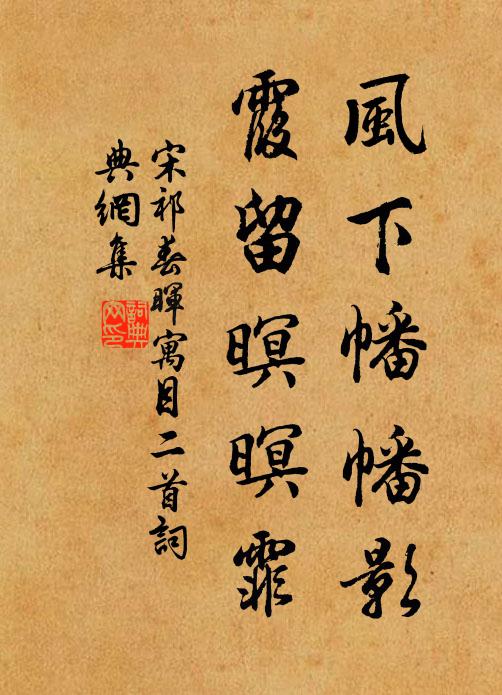 風下幡幡影
霞留暝暝霏
宋祁春暉寓目二首詞
典網集
詞典網印